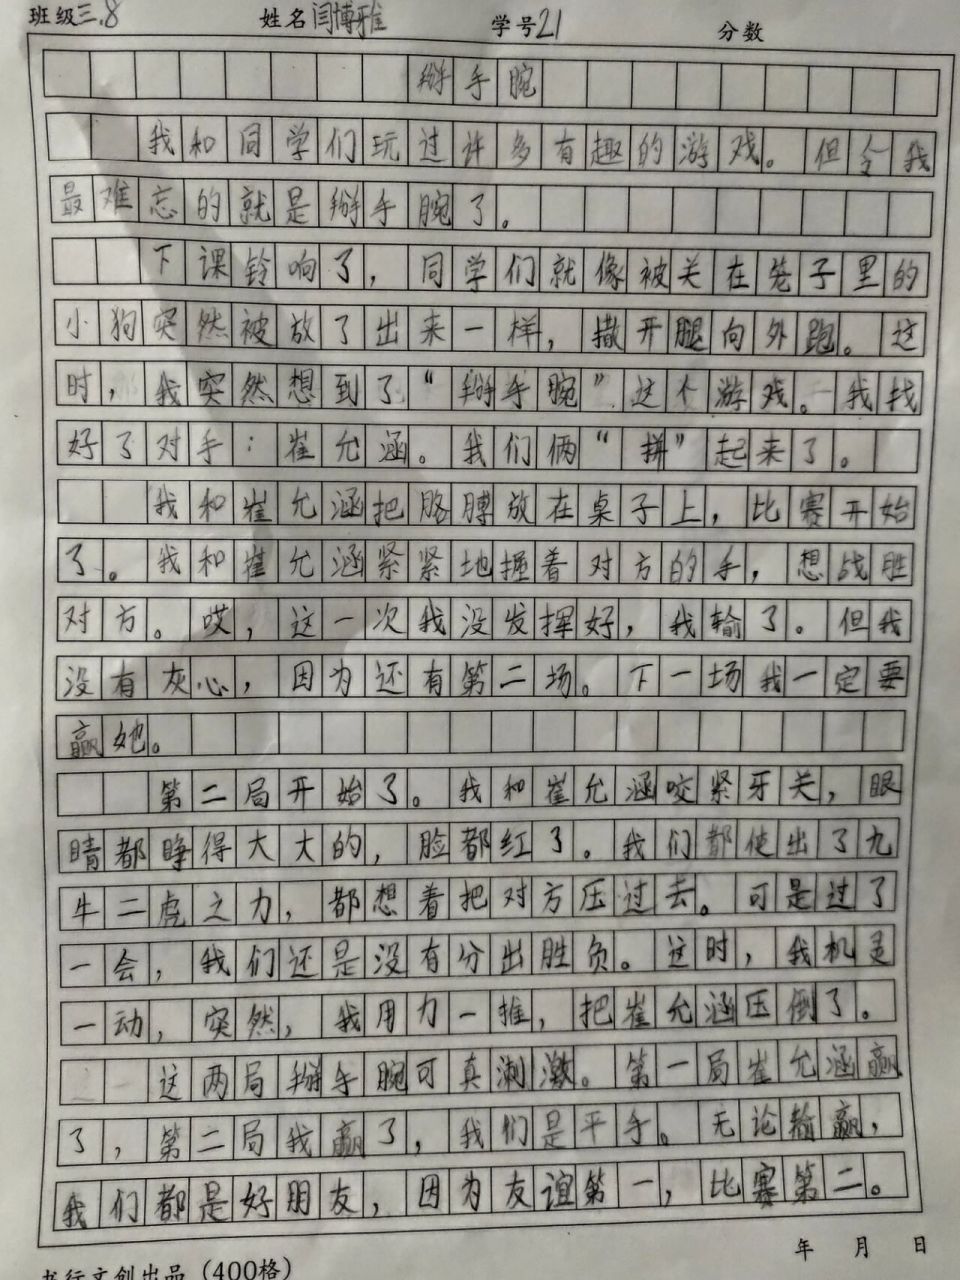 班级三.8 姓名闫博雅 学号21 分数
掰手腕
我和同学们玩过许多有趣的游戏。但令我
最难忘的就是掰手腕了。
下课铃响了，同学们就像被关在笼子里的
小狗突然被放了出来一样，撒开腿向外跑。这
时，我突然想到了“掰手腕”这个游戏。我找
好了对手：崔允涵。我们俩“拼”起来了。
我和崔允涵把胳膊放在桌子上，比赛开始
了。我和崔允涵紧紧地握着对方的手，想战胜
对方。哎，这一次我没发挥好，我输了。但我
没有灰心，因为还有第二场。下一场我一定要
赢她。
第二局开始了。我和崔允涵咬紧牙关，眼
睛都睁得大大的，脸都红了。我们都使出了九
牛二虎之力，都想着把对方压过去。可是过了
一会，我们还是没有分出胜负。这时，我机灵
一动，突然，我用力一推，把崔允涵压倒了。
这两局掰手腕可真刺激。第一局崔允涵赢
了，第二局我赢了，我们是平手。无论输赢，
我们都是好朋友，因为友谊第一，比赛第二。
年 月 日
书行文创出品（400格）